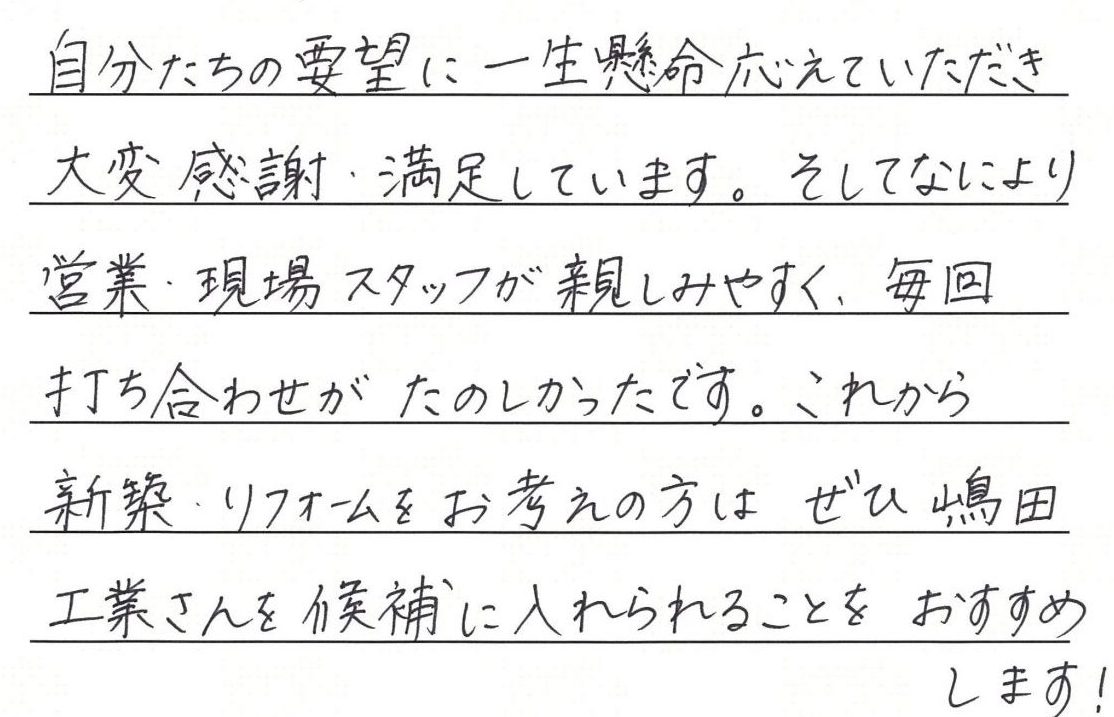 自分たちの要望に一生懸命応えていただき
大変感謝・満足しています。そしてなにより
営業・現場スタッフが親しみやすく、毎回
打ち合わせがたのしかったです。これから
新築・リフォームをお考えの方はぜひ嶋田
工業さんを候補に入れられることをおすすめ
します!